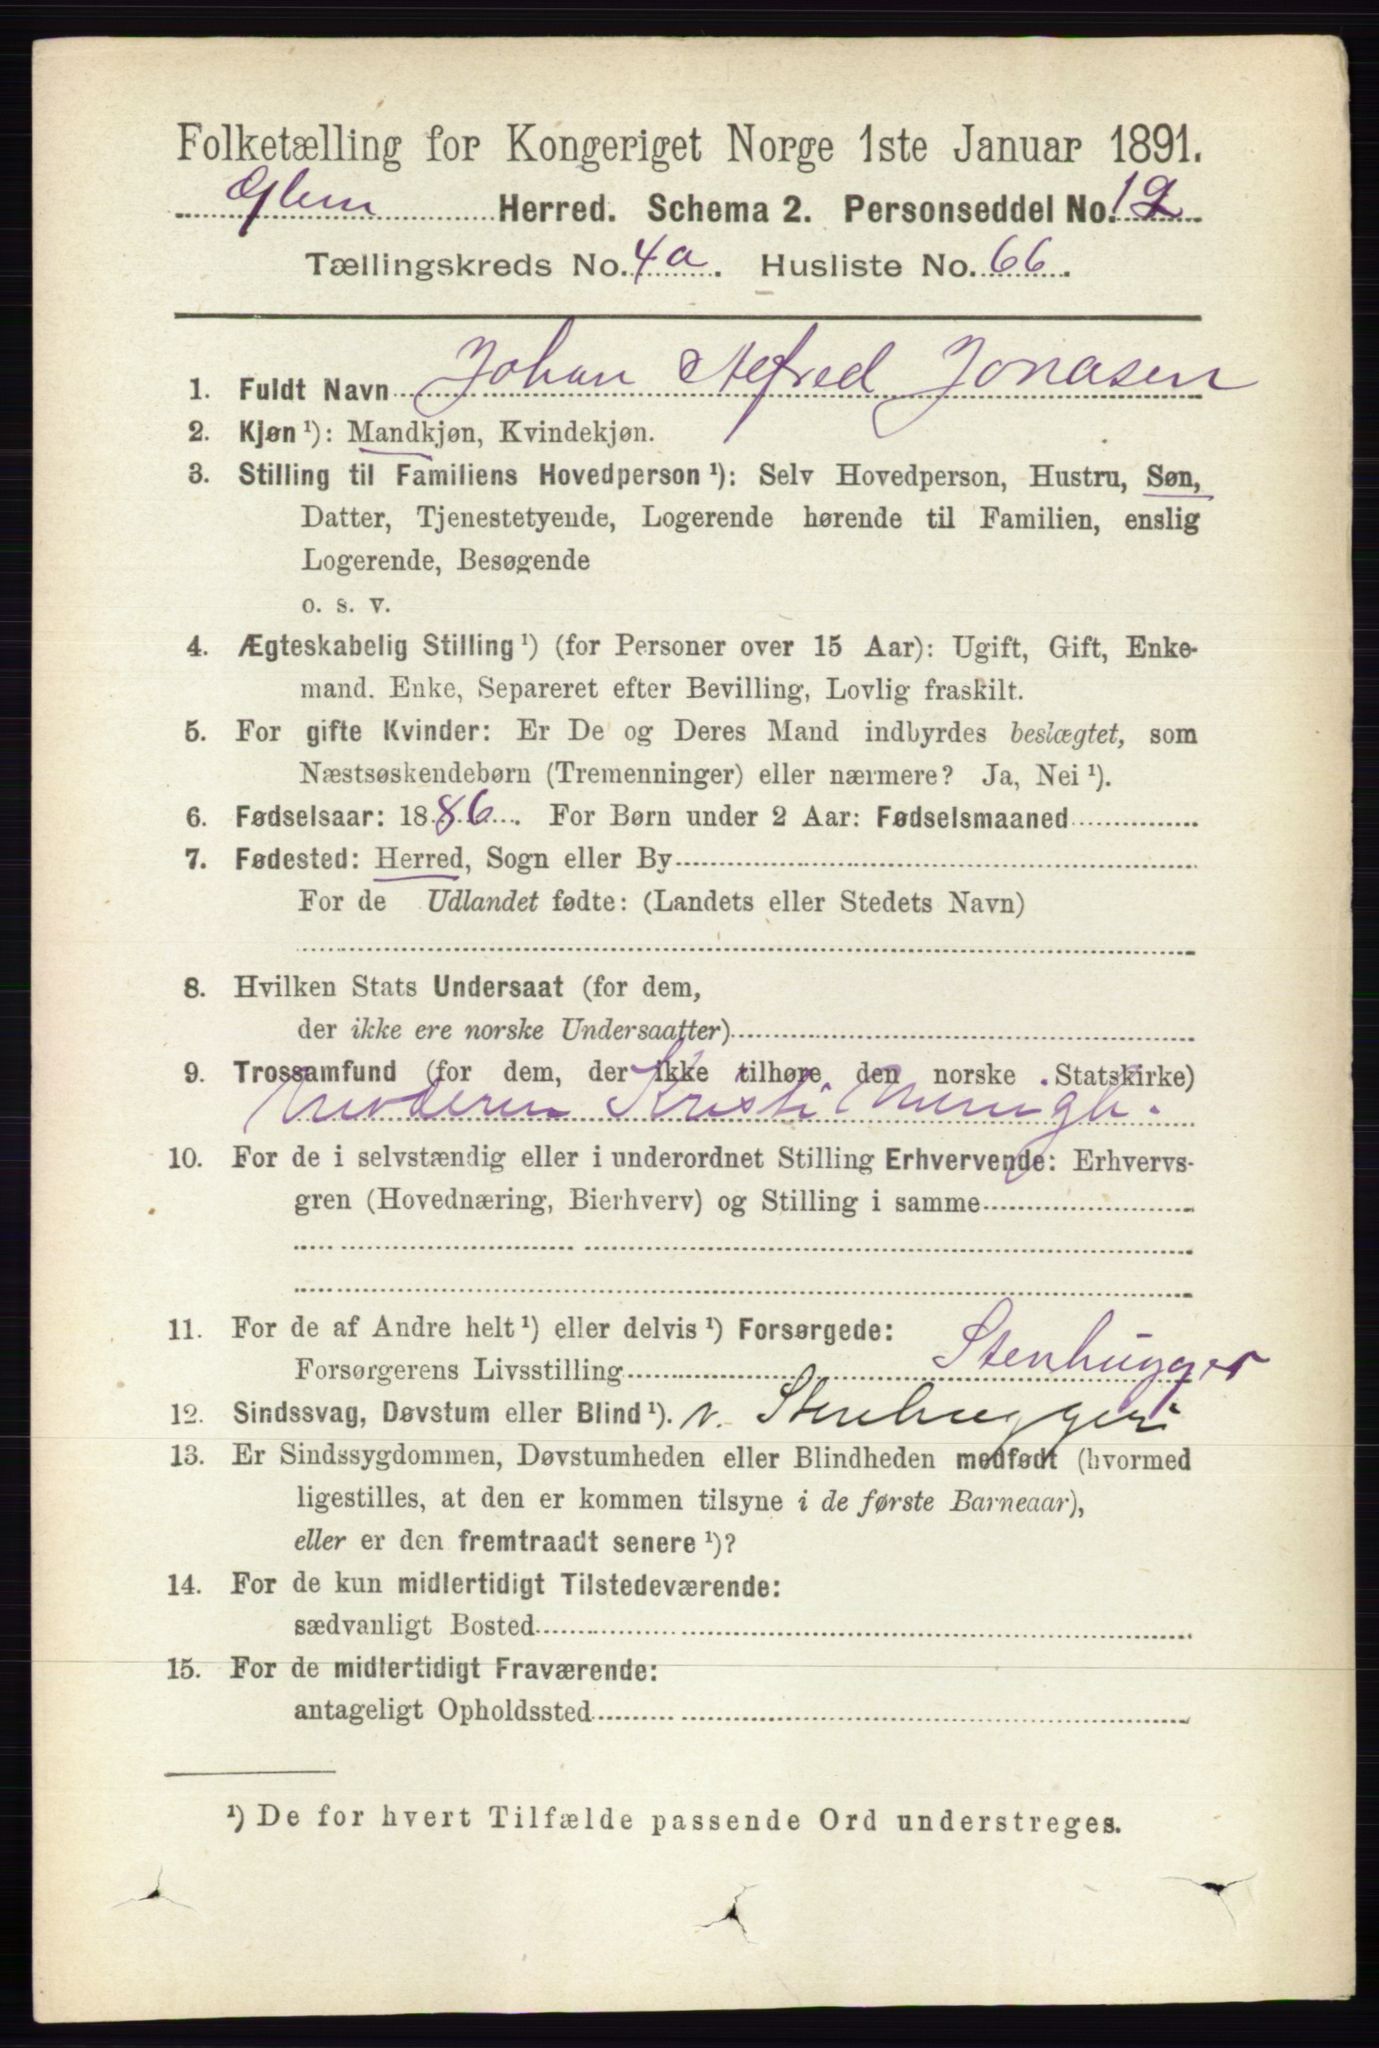 Folketælling for Kongeriget Norge 1ste Januar 1891.
Glem Herred. Schema 2. Personseddel No. 12
Tællingskreds No. 4a. Husliste No. 66.
1. Fuldt Navn Johan Alfred Jonasen
2. Kjøn ¹): Mandkjøn, Kvindekjøn.
3. Stilling til Familiens Hovedperson ¹): Selv Hovedperson, Hustru, Søn,
Datter, Tjenestetyende, Logerende hørende til Familien, enslig
Logerende, Besøgende
o. s. v.
4. Ægteskabelig Stilling ¹) (for Personer over 15 Aar): Ugift, Gift, Enke-
mand. Enke, Separeret efter Bevilling, Lovlig fraskilt.
5. For gifte Kvinder: Er De og Deres Mand indbyrdes beslægtet, som
Næstsøskendebørn (Tremenninger) eller nærmere? Ja, Nei ¹).
6. Fødselsaar: 1886. For Børn under 2 Aar: Fødselsmaaned
7. Fødested: Herred, Sogn eller By
For de Udlandet fødte: (Landets eller Stedets Navn)
8. Hvilken Stats Undersaat (for dem,
der ikke ere norske Undersaatter)
9. Trossamfund (for dem, der ikke tilhøre den norske Statskirke)
Moderen Kristi Menigh.
10. For de i selvstændig eller i underordnet Stilling Erhvervende: Erhvervs-
gren (Hovednæring, Bierhverv) og Stilling i samme
11. For de af Andre helt ¹) eller delvis ¹) Forsørgede:
Forsørgerens Livsstilling Stenhugger
12. Sindssvag, Døvstum eller Blind ¹). v. Stenhuggeri
13. Er Sindssygdommen, Døvstumheden eller Blindheden medfødt (hvormed
ligestilles, at den er kommen tilsyne i de første Barneaar),
eller er den fremtraadt senere ¹)?
14. For de kun midlertidigt Tilstedeværende:
sædvanligt Bosted
15. For de midlertidigt Fraværende:
antageligt Opholdssted
¹) De for hvert Tilfælde passende Ord understreges.